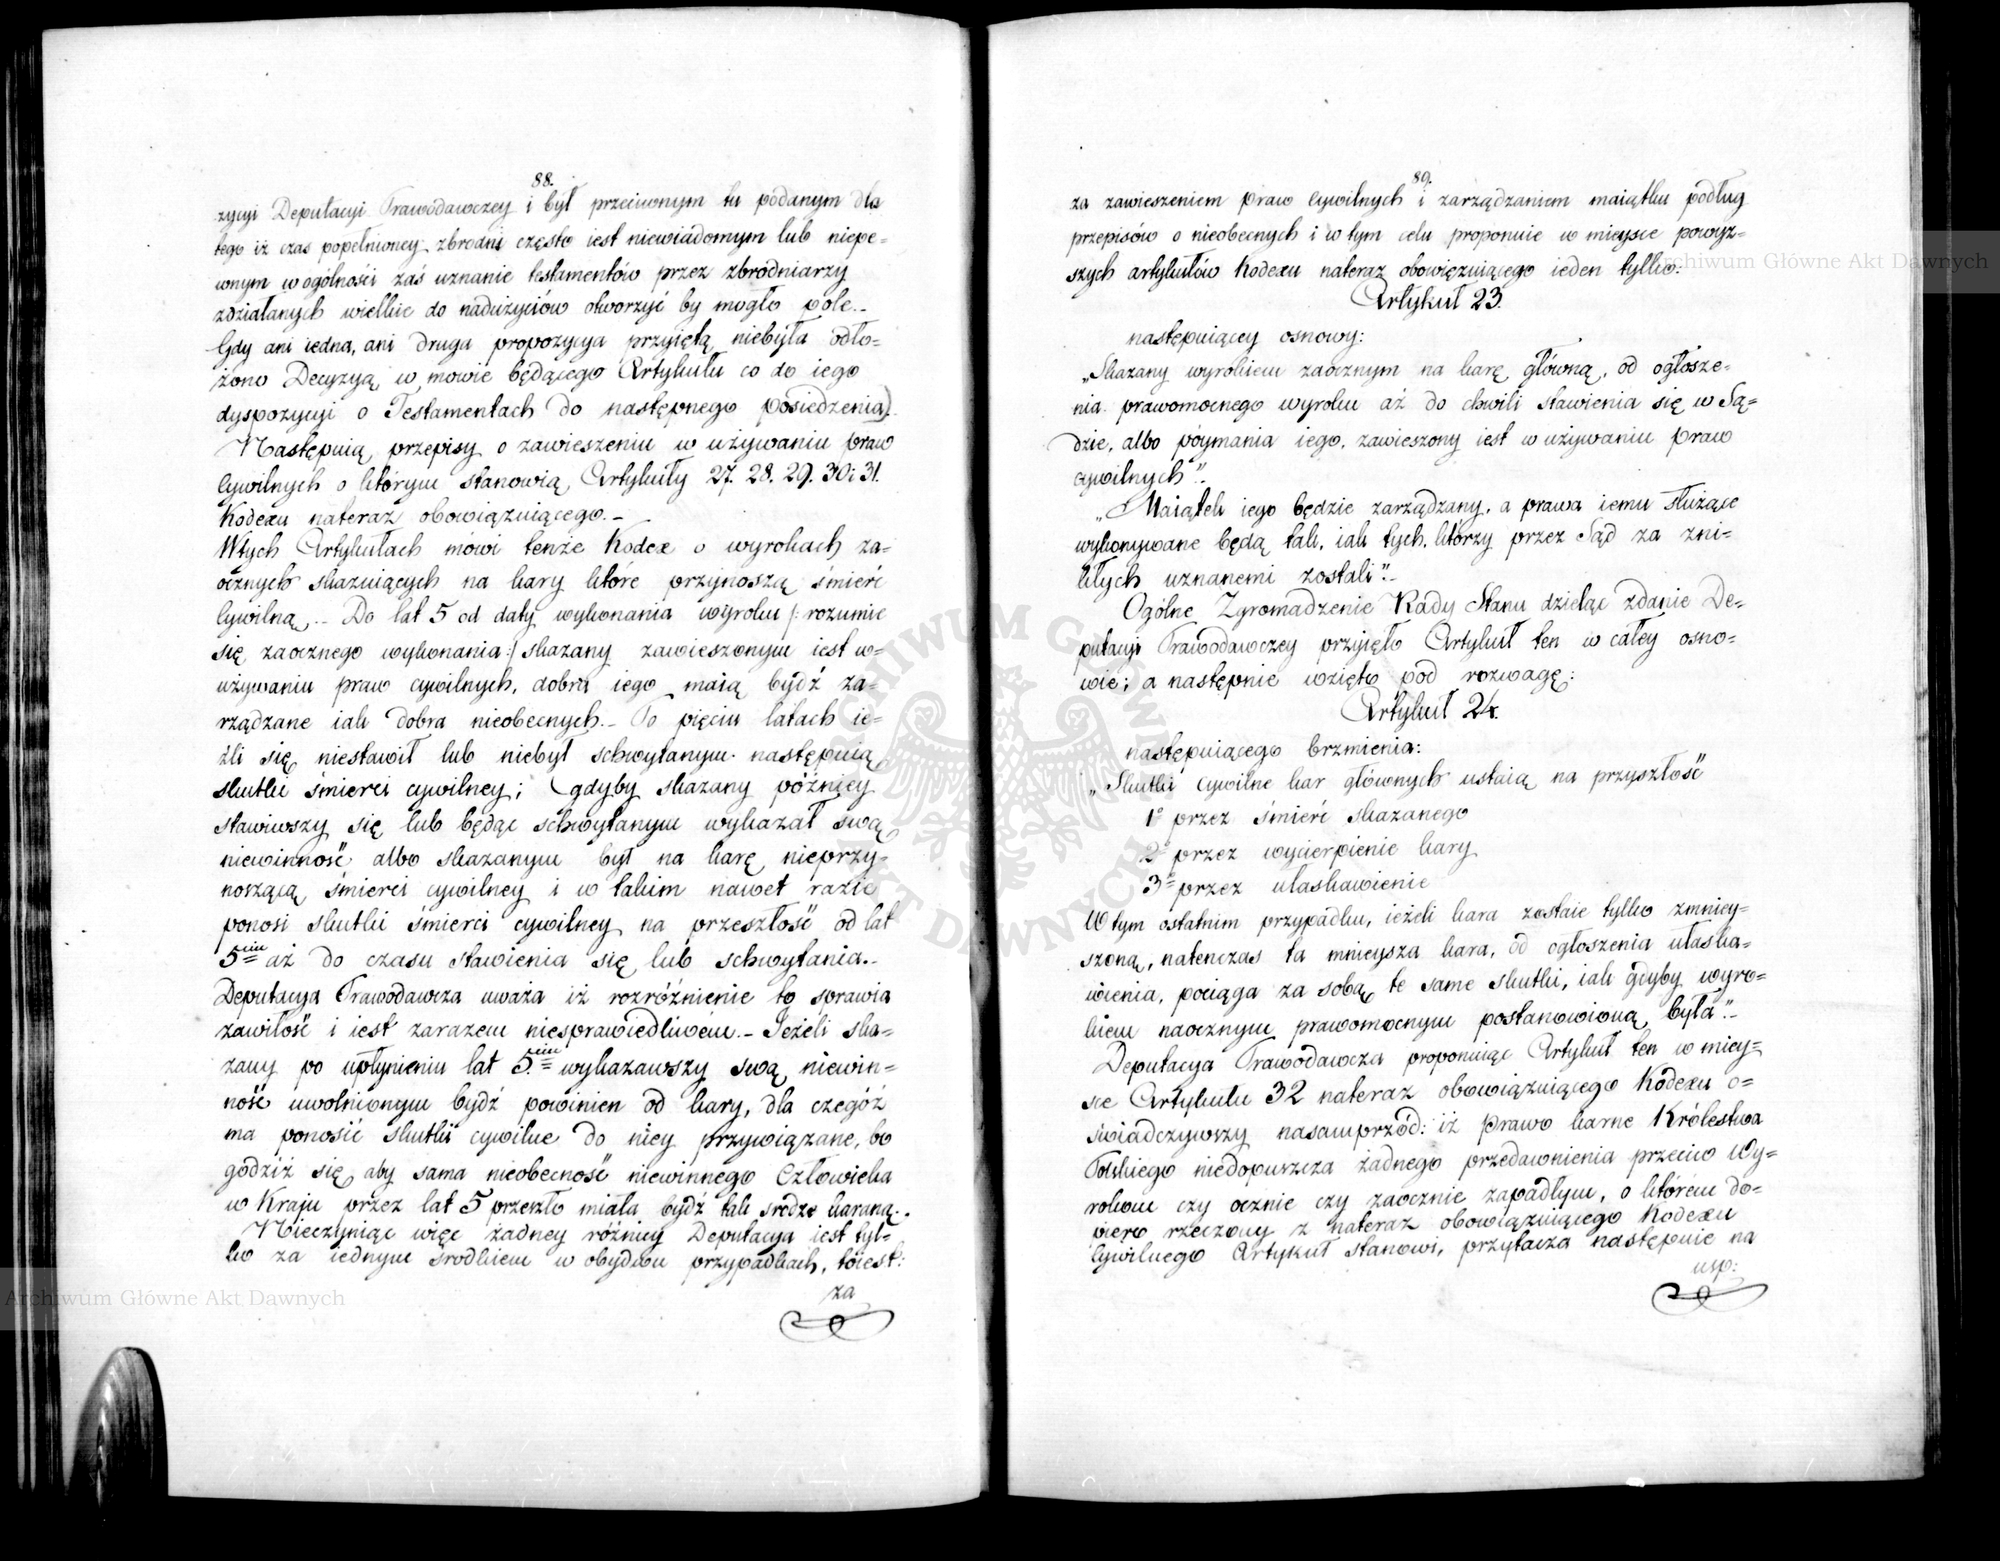 88.
zycyi Deputacyi Prawodawczey i był przeciwnym tu podanym dla
tego iż czas popełnioney zbrodni często iest niewiadomym lub niepe-
wnym w ogólności zaś uznanie testamentów przez zbrodniarzy
zdziałanych wielkie do nadużyciów otworzyć by mogło pole._
Gdy ani iedna, ani druga propozycya przyiętą niebyła odło-
żono Decyzyą w mowie będącego Artykułu co do iego
dyspozycyi o Testamentach do następnego posiedzenia)
Następuią przepisy o zawieszeniu w używaniu praw
Cywilnych o którym stanowią Artykuły 27. 28. 29. 30 i 31.
Kodexu nateraz obowiązuiącego._
W tych Artykułach mówi tenże Kodex o wyrokach za-
ocznych skazuiących na kary które przynoszą śmierć
Cywilną._ Do lat 5 od daty wykonania wyroku /: rozumie
się zaocznego wykonania :/ skazany zawieszonym iest w
używaniu praw cywilnych, dobra iego maią bydź za-
rządzane iak dobra nieobecnych._ Po pięciu latach ie-
źli się niestawił lub niebył schwytanym następuią
skutki śmierci cywilney; gdyby skazany późniey
stawiwszy się lub będąc schwytanym wykazał swą
niewinność albo skazanym był na karę nieprzy-
noszącą śmierci cywilney i w takim nawet razie
ponosi skutki śmierci cywilney na przeszłość od lat
5ciu aż do czasu stawienia się lub schwytania._
Deputacya Prawodawcza uważa iż rozróżnienie to sprawia
zawiłość i iest zarazem niesprawiedliwém._ Jeżeli ska-
zany po upłynieniu lat 5.ciu wykazawszy swą niewin-
ność uwolnionym bydź powinien od kary, dla czegóż
ma ponosić skutki cywilne do niey przywiązane, bo
godziż się aby sama nieobecność niewinnego Człowieka
w Kraju przez lat 5 przeszło miała bydź tak srodze karaną.
Nieczyniąc więc żadney różnicy Deputacya iest tyl-
ko za iednym srodkiem w obydwu przypadkach, toiest:
za
89.
za zawieszeniem praw Cywilnych i zarządzaniem maiątku podług
przepisów o nieobecnych i w tym celu proponuie w mieysce powyż-
szych artykułów Kodexu nateraz obowięzuiącego ieden tylko:
Artykuł 23.
następuiącey osnowy:
„Skazany wyrokiem zaocznym na karę główną, od ogłosze-
nia prawomocnego wyroku aż do chwili stawienia się w Są-
dzie, albo poymania iego, zawieszony iest w używaniu praw
cywilnych".
„Maiątek iego będzie zarządzany, a prawa iemu służące
wykonywane będą tak, iak tych, którzy przez Sąd za zni-
kłych uznanemi zostali"._
Ogólne Zgromadzenie Rady Stanu dzieląc zdanie De-
putacyi Prawodawczey przyięło Artykuł ten w całey osno-
wie; a następnie wzięto pod rozwagę:
Artykuł 24.
następuiącego brzmienia:
„Skutki cywilne kar głównych ustaią na przyszłość
1° przez śmierć skazanego
2° przez wycierpienie kary
3° przez ułaskawienie
W tym ostatnim przypadku, ieżeli kara zostaie tylko zmniey-
szoną, natenczas ta mnieysza kara, od ogłoszenia ułaska-
wienia, pociąga za sobą te same skutki, iak gdyby wyro-
kiem naocznym prawomocnym postanowioną była"._
Deputacya Prawodawcza proponuiąc Artykuł ten w miey-
sce Artykułu 32 nateraz obowiązuiącego Kodexu o-
świadczywszy nasamprzód: iż prawo karne Królestwa
Polskiego niedopuszcza żadnego przedawnienia przeciw Wy-
rokom czy ocznie czy zaocznie zapadłym, o którém do-
piero rzeczony z nateraz obowiązuiącego Kodexu
Cywilnego Artykuł stanowi, przytacza następnie na
usp:
Archiwum Główne Akt Dawnych
Archiwum Główne Akt Dawnych
ARCHIWUM GŁÓWNE AKT DAWNYCH